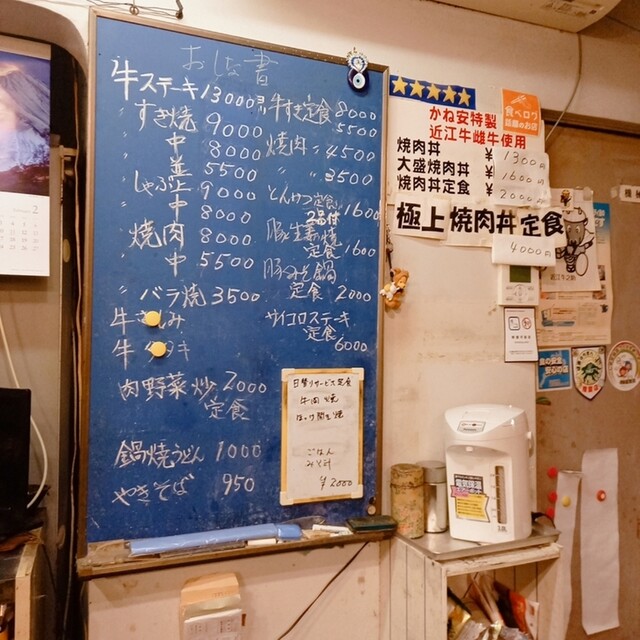 おしな書
牛ステーキ 13000円
〃 すき焼 9000
〃 中 8000
〃 並 5500
〃 しゃぶ 上 9000
〃 中 8000
〃 焼肉 8000
〃 中 5500
〃 バラ焼 3500
牛
牛 キ
肉野菜炒定食 2000
鍋焼うどん 1000
やきそば 950
牛すき定食 8000
5500
焼肉 〃 4500
〃 〃 3500
とんかつ定食 1600
豚生姜焼定食 1600
豚みそ鍋定食 2000
サイコロステーキ定食 6000
日替りサービス定食
牛肉
ごはん
みそ汁
¥2000
かね安特製
近江牛雌牛使用
焼肉丼 ¥ 1300円
大盛焼肉丼 ¥ 1600円
焼肉丼定食 ¥ 2000円
極上焼肉丼定食
4000円
食べログ
2
電気保温